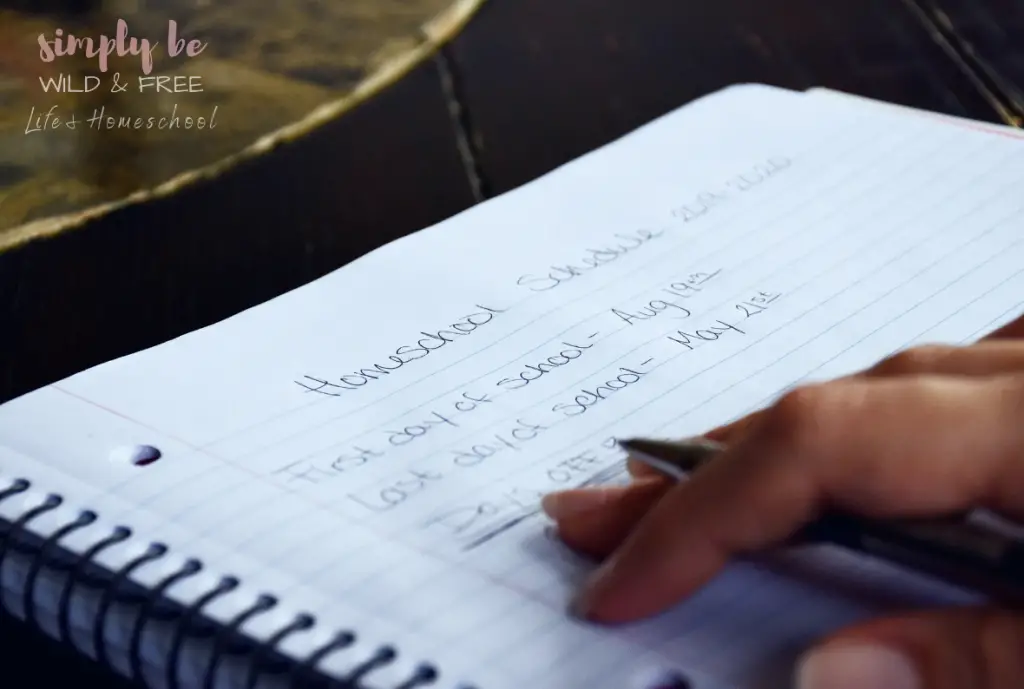 simply be
WILD & FREE
Life & Homeschool
Homeschool Schedule 2019-2020
First day of school- Aug 19th
Last day of school- May 21st
Days OFF